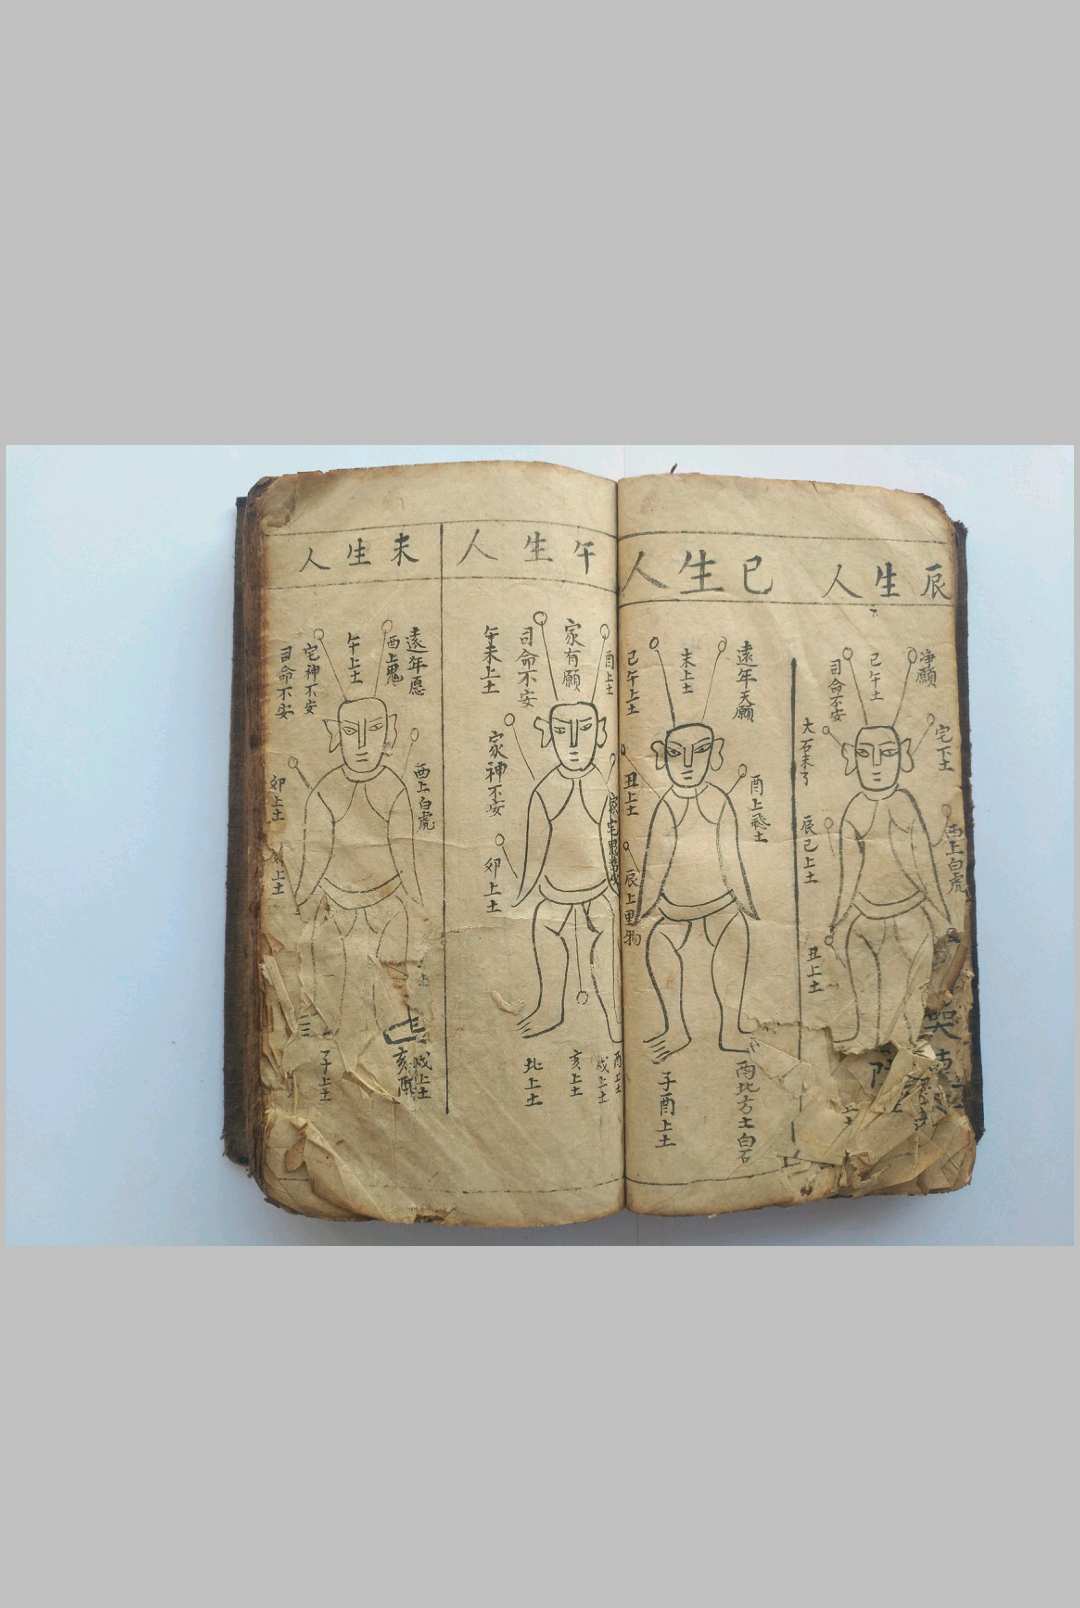 辰生人
淨願
宅下土
己午土
司命不安
大石未了
辰己上土
酉上白虎
丑上土
巳生人
遠年天願
未上土
己午上土
酉上飛土
丑上土
辰上黑物
酉北方土白石
子酉上土
午生人
酉上土
家有願
司命不安
午未上土
家神不安
卯上土
酉上土
戌上土
亥上土
北上土
未生人
遠年愿
酉上鬼
午上土
宅神不安
司命不安
酉上白虎
卯上土
上土
戌上土
子上土